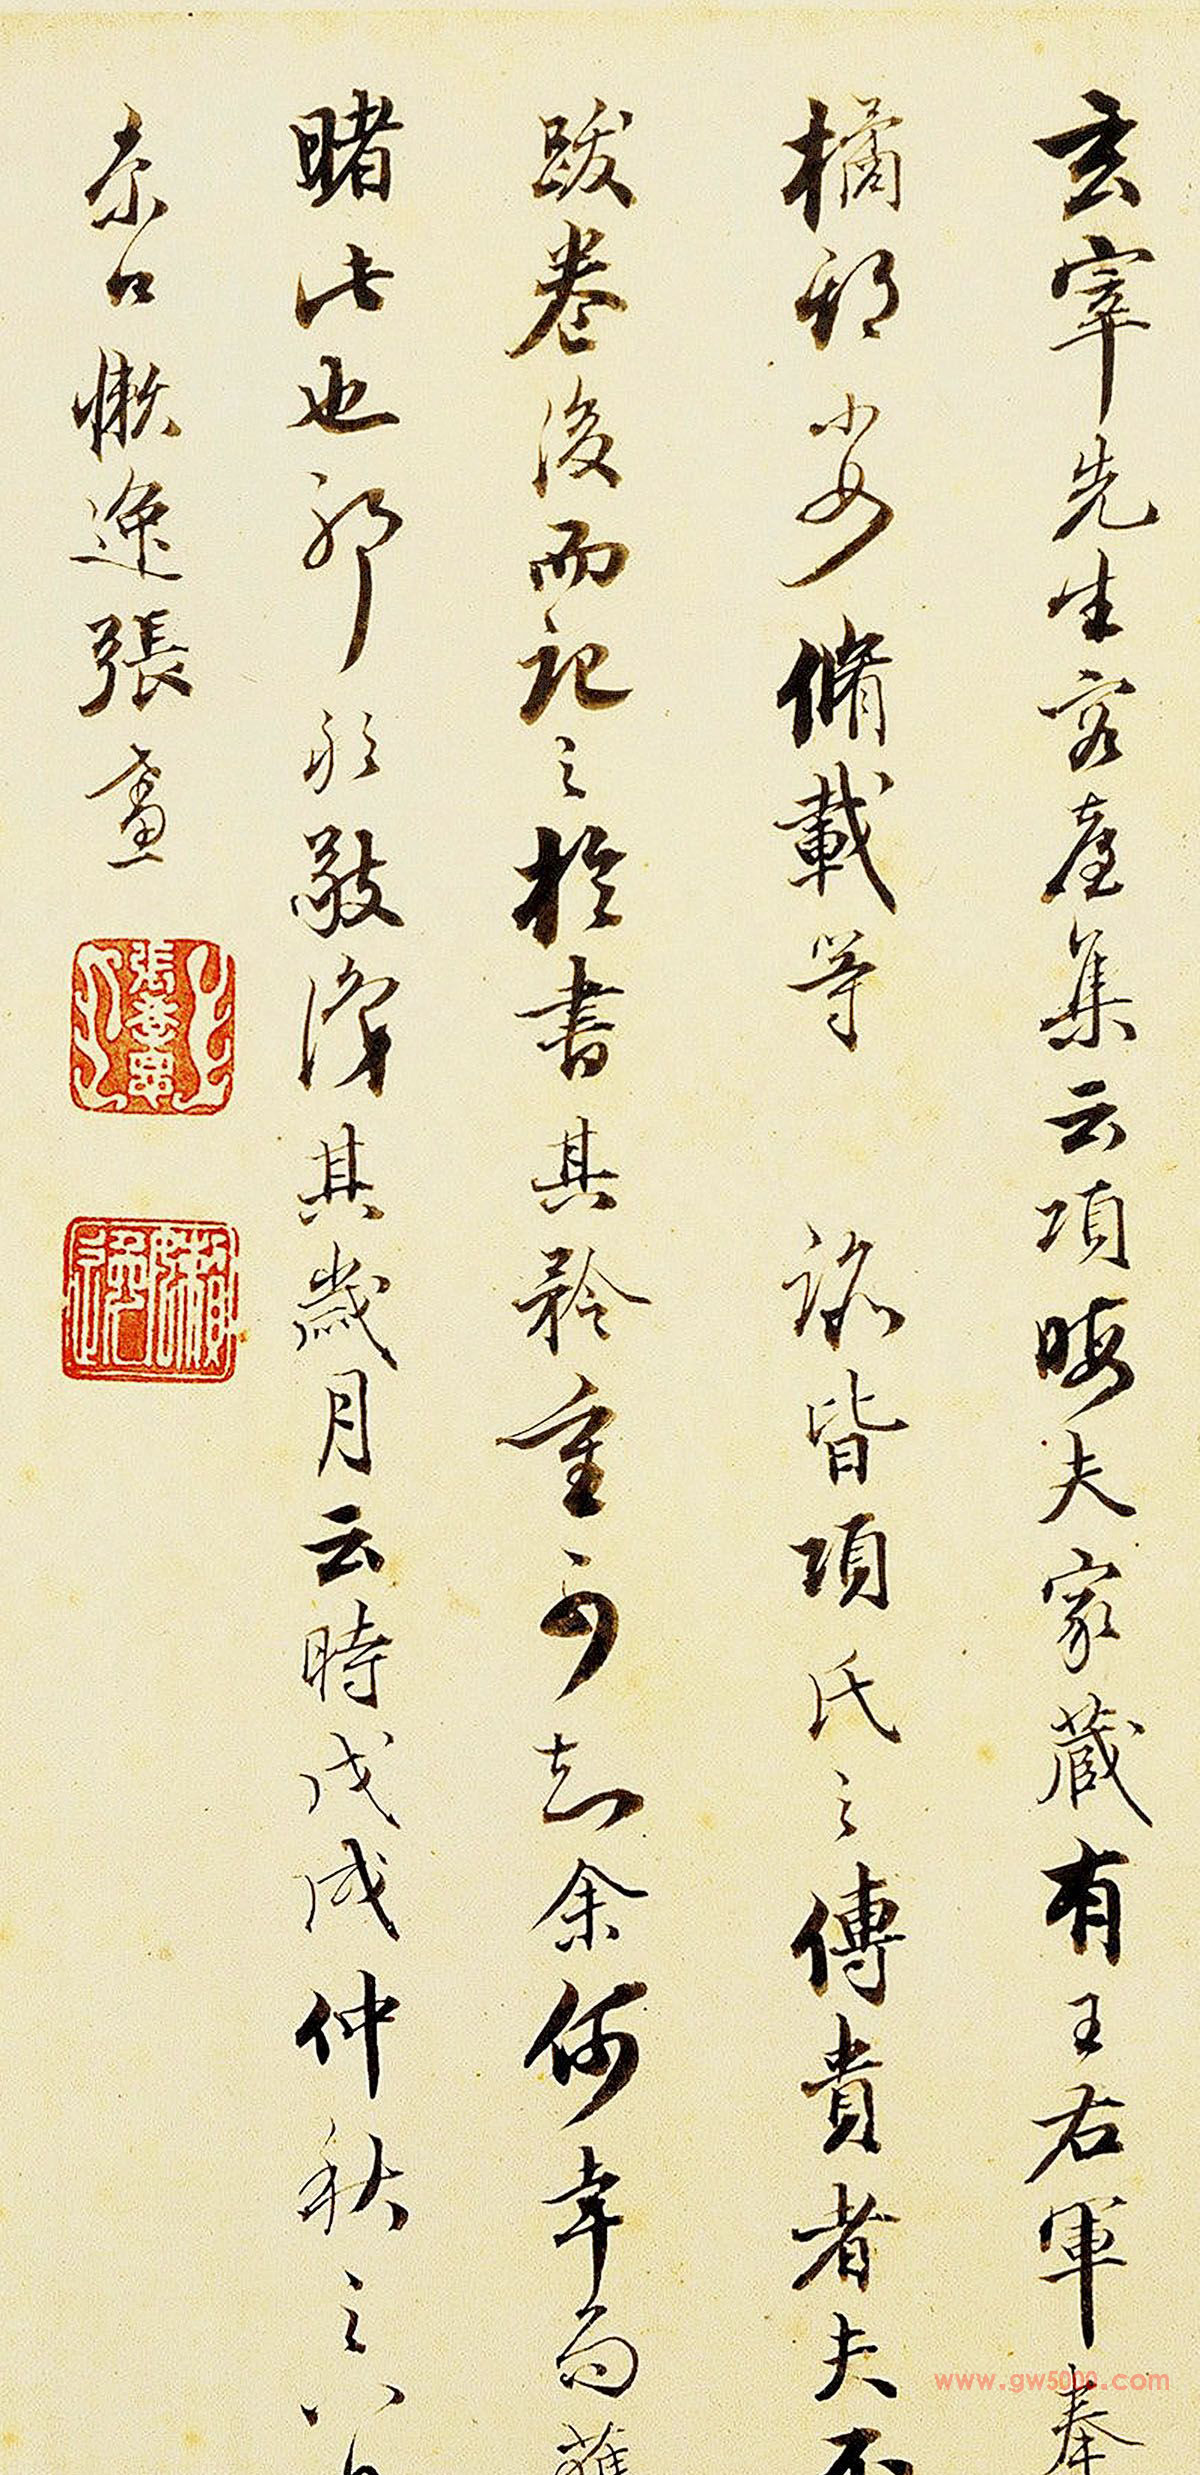 玄宰先生容臺集云項晦夫家藏有王右軍奉
橘郡小女脩載等帖皆項氏之傳貴者夫不
跋卷後而記之於書其矜重可知余何幸而獲
睹此也耶於敬識其歲月云時戊戌仲秋之
京口懶逸張
張孝思
懶逸
www.gw5000.com